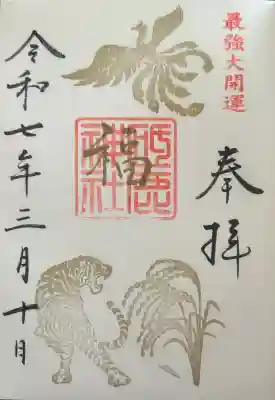 最強大開運
奉拝
福
神社
令和七年三月十日